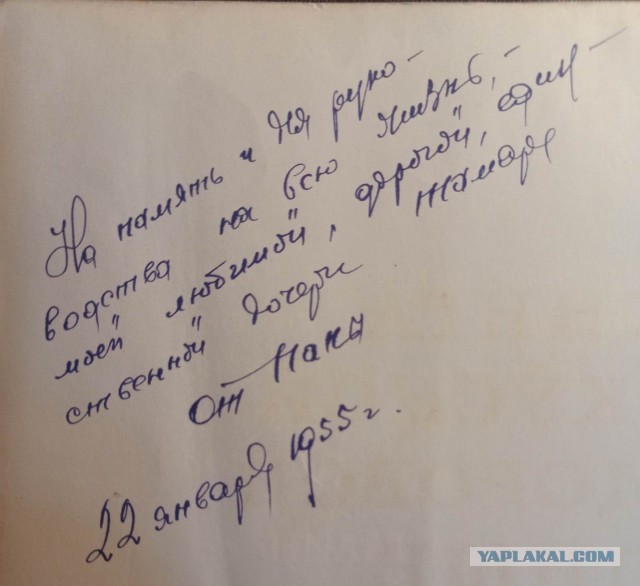 На память и для руко-
водства на всю жизнь, -
моей любимой, дорогой, един-
ственной дочери Тамаре
от папы
22 января 1955 г.
YAPLAKAL.COM